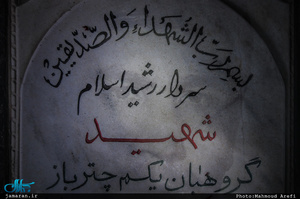 بسم رب الشهداء والصدیقین
سردار رشید اسلام
شهید
گروهبان یکم چترباز
jamaran.ir
Photo:Mahmood Arefi